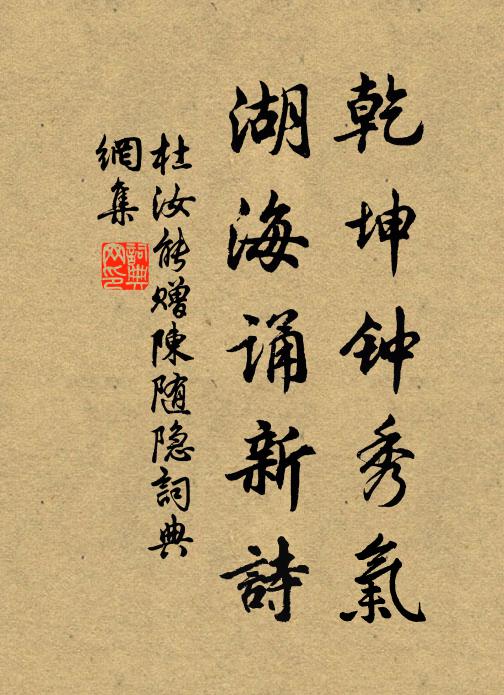 乾坤钟秀氣
湖海诵新詩
杜汝能赠陳随隐詞典
網集
詞典
网印